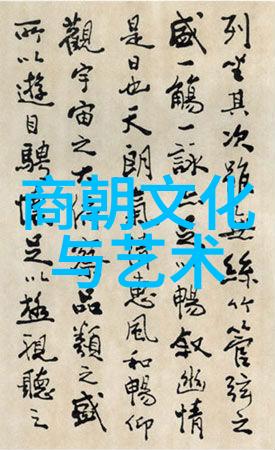 列坐其次雖無絲竹管弦之
盛一觴一詠亦足以暢敘幽情
是日也天朗氣清惠風和暢仰
觀宇宙之大俯察品類之盛
所以遊目騁懷足以極視聽之
商朝文化
与艺术